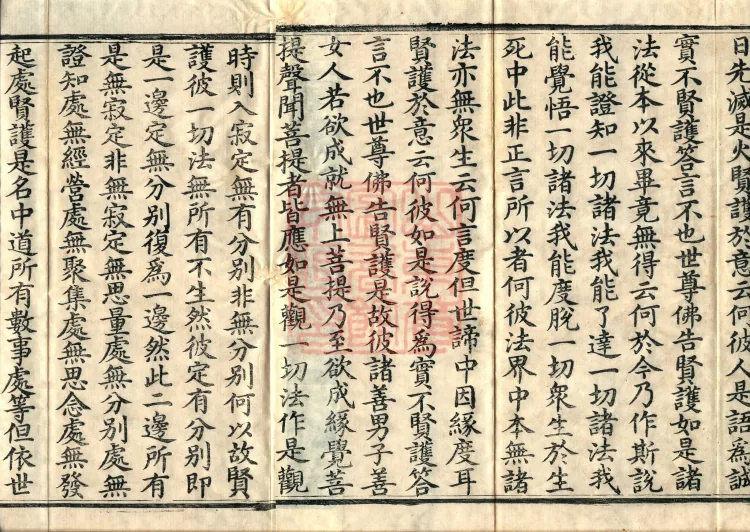 日先滅是火賢護於意云何彼人是語為誠
實不賢護答言不也世尊佛告賢護如是諸
法從本以來畢竟無得云何於今乃作斯說
我能證知一切諸法我能了達一切諸法我
能覺悟一切諸法我能度脫一切衆生於生
死中此非正言所以者何彼法界中本無諸
法亦無衆生云何言度但世諦中因緣度耳
賢護於意云何彼如是說得為實不賢護答
言不也世尊佛告賢護是故彼諸善男子善
女人若欲成就無上菩提乃至欲成緣覺菩
提聲聞菩提者皆應如是觀一切法作是觀
時則入寂定無有分別非無分別何以故賢
護彼一切法無所有不生然彼定有分別即
是一邊定無分別復為一邊然此二邊所有
是無寂定非無寂定無思量處無分別處無
證知處無經營處無聚集處無思念處無發
起處賢護是名中道所有數事處等但依世